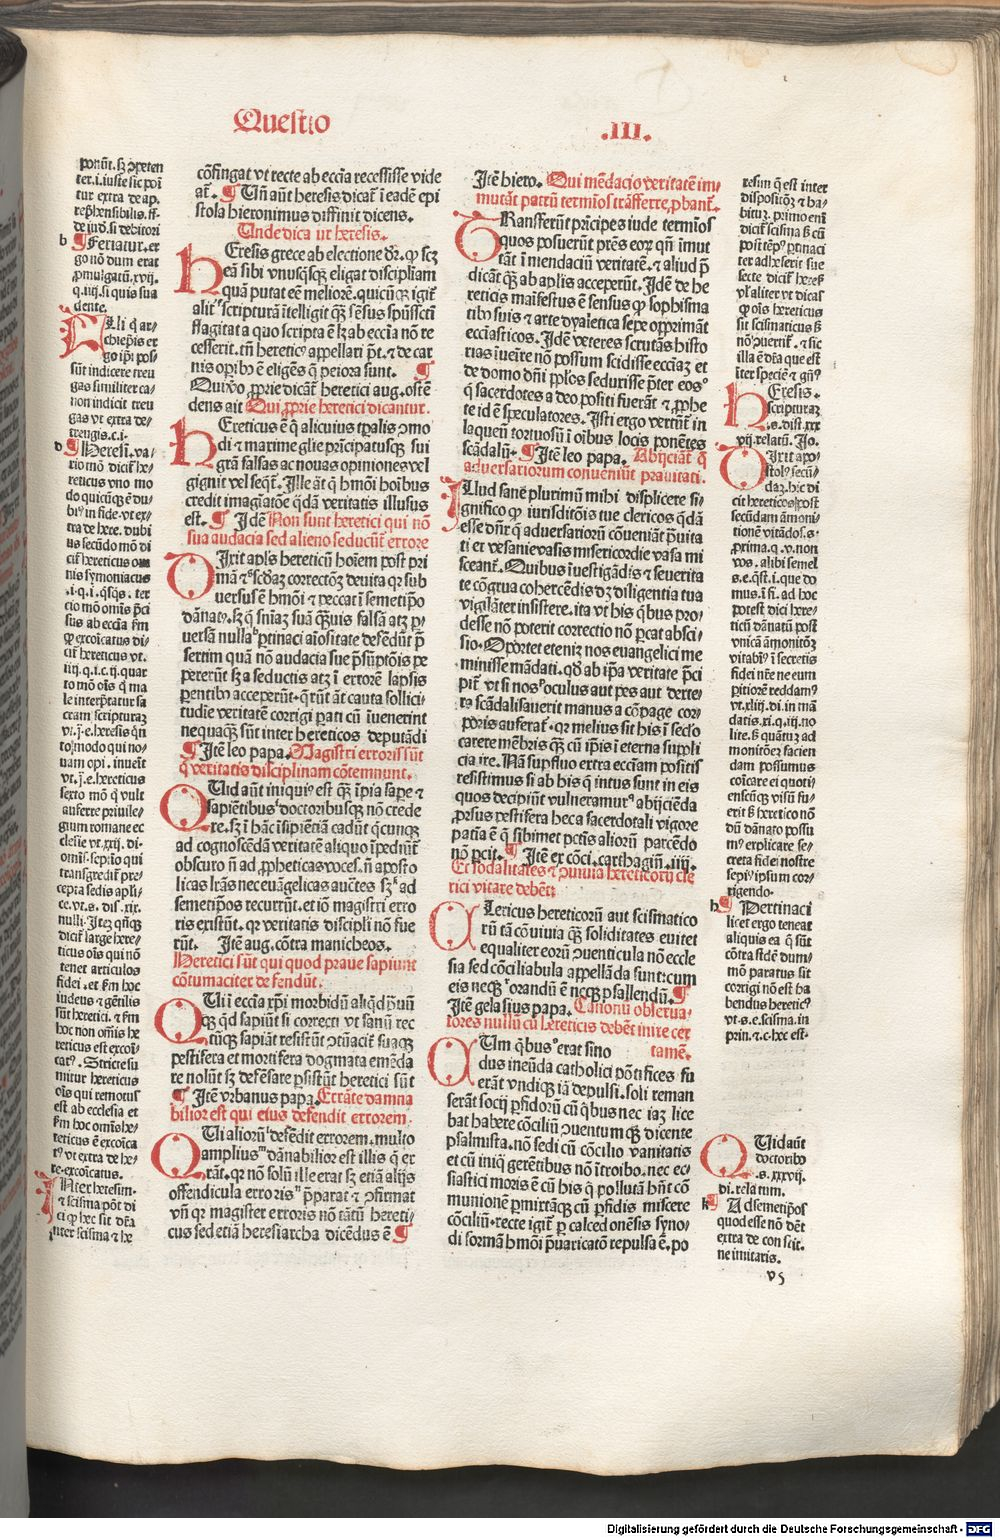 Questio
.III.
ponūt. sz ꝯpeten
ter. i. iuste sic poñ
tur extra de ap.
rep̄hensibilis. ff.
de iud. si debitori
b ¶ Feriatur. er
go nō dum erat
ꝓmulgatū. xvij.
q. iiij. si quis sua
dente.
ILli q̄ ar/
chiep̄is er
go ip̄i pos/
sūt indicere treu
gas similiter ca/
non indicit treu
gas vt extra de/
treugis. c. i.
d ¶ Heresi. va/
rio mō dicit̄ he/
reticus vno mo
do quicūqꝫ ē du/
biꝰ in fide. vt ex/
tra de here. dubi
us secūdo mō di
cit̄ hereticus om
nis symoniacus
.i. q. i. q̄sq̄s. ter
cio mō om̄is p̄ci
sus ab eccia s̄m
ꝙ excōicatus di/
cit̄ hereticus vt.
iiij. q. i. c. ij. quar
to mō oīs q̄ ma
le interp̄tatur sa
cram scripturaꝫ
vt. j. e. heresis qn̄
to modo qui no/
uam opi. inuēit
vt. j. e. hereticus
sexto mō q̄ vult
auferre priuile/
gium romane ec
clesie vt. xxij. di.
om̄is. septīo qui
transgredit̄ pre/
cepta sedis apli/
ce. vt. s. dis. xix.
nulli. Iteꝫ qn̄qꝫ
dicit̄ large here/
ticus oīs qui nō
tenet articulos
fidei. et s̄m hoc
iudeus ⁊ gētilis
sūt heretici. ⁊ s̄m
hoc non om̄is he
reticus est excōi/
catꝰ. Stricte su
mitur hereticus
oīs qui remotus
est ab ecclesia et
s̄m hoc omīs he/
reticus ē excōica
tꝰ vt extra de he/
re. excōicatus.
INter heresim.
⁊ scisma pōt di
ci ꝙ hec sit dr̄a
inter scisma ⁊ he
cōfingat vt recte ab eccīa recessisse vide
at̄. ¶ Uñ aūt heresis dicat̄ ī eadē epi
stola hieronimus diffinit dicens.
Unde dica ur heresis.
HEresis grece ab electione dr̄. ꝙ scꝫ
eā sibi vnusq̄sqꝫ eligat disciplinam
quā putat eē meliorē. quicūqꝫ igit̄
alit̄ scripturā ītelligit qꝫ sēsus spūssct̄i
flagitat a quo scripta ē lꝫ ab eccīa nō re
cesserit. tn̄ hereticꝰ appellari pt̄. ⁊ de car
nis opibꝰ ē eligēs q̄ peiora sunt. ¶
Quiꝰ ꝓprie dicāt̄ heretici aug. ostē
dens ait Qui ꝓprie heretici dicantur.
HEreticus ē q̄ alicuius tp̄alis ꝯmo
di ⁊ maxime glīe prīcipatusqꝫ sui
gr̄a falsas ac nouas opiniones vel
gignit vel seqt̄. Ille āt q̄ hmōi hoībus
credit imagīatōe q̄dā veritatis illusus
est. ¶ Idē Non sunt heretici qui nō
sua audacia sed alieno seducūt̄ errore
DIxit apl̄s hereticū hoīem post pri
mā ⁊ secdaꝫ correctōꝫ deuita qꝛ sub
uersus ē hmōi ⁊ peccat ī semetip̄o
dānatꝰ. sꝫ q̄ sn̄iaꝫ suā qꝫuis falsā atqꝫ ꝑ/
uersā nulla ꝑtinaci aīositate defēdūt p̄
sertim quā nō audacia sue p̄sūptōis pe
pererūt sꝫ a seductis atqꝫ ī errorē lapsis
parentibꝰ acceperūt. q̄rūt āt cauta sollici/
tudīe veritatē corrigi pati cū īuenerint
nequaqꝫ sūt inter hereticos deputādi
¶ Itē leo papa. Magistri erroris sūt
q̄ veritatis disciplinam cōtemnunt.
QUid aūt iniquiꝰ est qꝫ īpia sape ⁊
sapiētibus doctoribusqꝫ nō crede
re. sꝫ ī hāc īsipiētiā cadūt q̄cunqꝫ
ad cognoscēdā veritatē aliquo īpediūt̄
obscuro n̄ ad ꝓpheticas voces. n̄ aposto
licas lr̄as nec euāgelicas auctes sꝫ ad
semetipōs recurrūt. et iō magistri erro
ris existūt. qꝛ veritatis discipli nō fue
rūt. Itē aug. cōtra manicheos.
Heretici sūt qui quod praue sapiunt
cōtumaciter defendūt.
QUi ī eccīa xp̄i morbidū aliq̄d p̄uū
qꝫ qd̄ sapiūt si correcti vt sanū rec
tūqꝫ sapiāt resistūt ꝯtūacit̄ suaqꝫ
pestifera et mortifera dogmata emēda
re nolūt sꝫ defēsare ꝑsistūt heretici sūt
¶ Itē vrbanus papa. Errāte damna
bilior est qui eius defendit errorem.
QUi aliorū defēdit errorem. multo
amplius dānabilior est illis q̄ er
rāt. qꝛ nō solū ille errat sꝫ etiā alijs
offendicula erroris p̄parat ⁊ ꝯfirmat
vn̄ qꝛ magister erroris nō tātū hereti/
cus sed etiā heresiarcha dicēdus ē ¶
Itē hiero. Qui mēdacio veritatē im/
mutāt patrū termīos trāsferre ꝓbant̄.
TRansferūt prīcipes iude termīos
quos posuerūt pr̄es eoꝝ qn̄ imut
tāt ī mendaciū veritatē. ⁊ aliud p̄
dicāt qꝫ ab apl̄is acceperūt. Idē de he
reticis māifestus ē sensus ꝙ sophisma
tibꝰ suis ⁊ arte dyaletica sepe opprimāt
eccīasticos. Idē veteres scrutās histo
rias īueīre nō possum scidisse eccīaꝫ et
de domo dn̄i pplōs sedurisse p̄ter eos
q̄ sacerdotes a deo positi fuerāt ⁊ ꝓphe
te id ē speculatores. Isti ergo vertūt̄ in
laqueū tortuosū ī oībus locis ponētes
scādalū. ¶ Itē leo papa. Abijciāt̄ q̄
aduersariorum conueniūt prauitati.
ILlud sanē plurimū mihi displicere si/
gnifico ꝙ iurisditōis tue clericos q̄dā
esse dn̄r q̄ aduersariorū cōueniāt p̄uita
ti et vesanie vasis misericordie vasa mi
sceant̄. Quibus īuestigādis ⁊ seuerita
te cōgrua cohercēdis dꝫ diligentia tua
vigilāter insistere. ita vt his q̄bus pro/
desse nō poterit correctio nō ꝑcat absci/
sio. Oportet eteniꝫ nos euangelici me
minisse mādati. qd̄ ab ip̄a veritate p̄ci
pit̄ vt si nos oculus aut pes aut dexte/
ra scādalisauerit manus a cōpage cor/
poris auferat̄. qꝛ melius sit his ī seclo
carere mēbris qꝫ cū ip̄is ī eterna suppli
cia ire. Nā supfluo extra eccīam positis
resistimus si ab his q̄ intus sunt in eis
quos decipiūt vulneramur abijciēda
ꝓrsus pestifera hec a sacerdotali vigore
patīa ē q̄ sibimet pctīs aliorū parcēdo
nō pcit. ¶ Itē ex cōci. carthagiñ. iiij.
Et sodalitates ⁊ ꝯuiuia hereticorū cle
rici vitare debēt.
CLericus hereticorū aut scismatico
rū tā cōuiuia qꝫ soliditates euitet
equaliter eorū ꝯuenticula nō eccle
sia sed cōciliabula appellāda sunt: cum
eis neqꝫ orandū ē neqꝫ psallendū. ¶
Itē gelasius papa. Canonū obserua/
tores nullū cū hereticis debēt inire cer
tamē.
CUm q̄bus erat sino
dus ineūda catholici pōtifices fu
erāt vndiqꝫ iā depulsi. soli reman
serāt socij ꝑfidorū cū q̄bus nec iaꝫ lice
bat habere cōciliū ꝯuentumqꝫ dicente
psalmista. nō sedi cū cōcilio vanitatis
et cū iniq̄ gerētibus nō ītroibo. nec ec/
siastici moris ē cū his q̄ pollutā hn̄t cō
munionē pmixtāqꝫ cū ꝑfidis miscere
cōciliū. recte igit̄ ꝑ calcedonēsis syno/
di formā hmōi p̄uaricatō repulsa ē. po
resim q̄ est inter
dispositōꝫ ⁊ ha/
bituꝫ. primo eni
dicit̄ scisma sꝫ cū
postēpꝰ ꝑtinaci
ter adheserit sue
secte dicit̄ heres̄
vl̄ aliter vt dicat̄
ꝙ oīs hereticus
sit scismaticus sꝫ
nō ꝯuertit̄. ⁊ sic
illa ē dr̄a que est
iter speciē ⁊ gn̄ꝰ
HEresis.
scripturaꝫ
.s. dist. xxx
vij. relatū. Jo.
DIxit apo/
stolꝰ secū/
daꝫ. hic di
cit hereticos post
secūdam āmoni/
tionē vitādos. s.
prima. q. v. non
vos. alibi semel
s. e. q̄st. i. que do
mus. ī fi. ad hoc
potest dici here/
ticū dānatū post
vnicā āmonitōꝫ
vitabꝰ ī secretis
fidei nr̄e ne eum
pitiorē reddamꝰ
vt. xliij. di. in mā
datis. xi. q. iij. no
lite. sꝫ quātuꝫ ad
monitōeꝫ facien
dam possumus
cōicare ei quoti/
enscūqꝫ visū fu/
erit sꝫ heretico nō
dū dānato possu
mꝰ explicare se/
creta fidei nostre
sepiꝰ ipsum cor/
rigendo.
h ¶ Pertinaci
licet ergo teneat
aliquis ea q̄ sūt
cōtra fidē dum/
mō paratus sit
corrigi nō est ha
bendus hereticꝰ
vt. s. e. scisma. in
prin. ⁊. c. hec est.
QUid aūt
doctoribꝰ
.s. xxxvij.
di. relatum.
k ¶ Ad semetip̄os
quod esse nō dēt
extra de constit.
ne innitaris.
v5
Digitalisierung gefördert durch die Deutsche Forschungsgemeinschaft - DFG